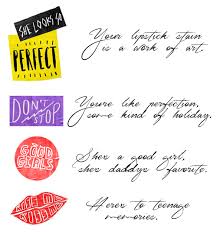 SHE LOOKS SO
PERFECT
Your lipstick stain
is a work of art.
DON'T
STOP
You're like perfection,
some kind of holiday.
GOOD
GIRLS
Shes a good girl,
shes daddys favorite.
Heres to teenage
memories.